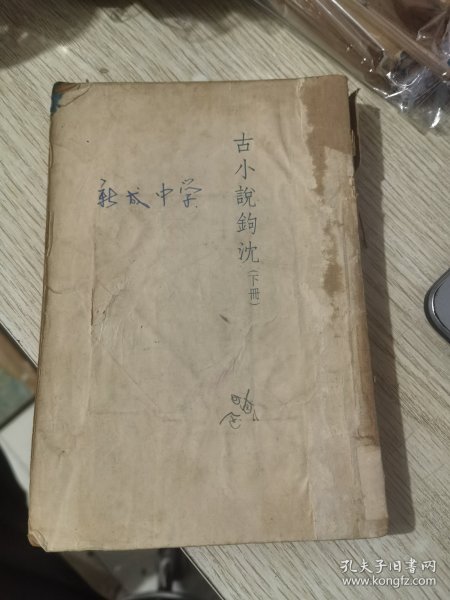 古小說鉤沈（下冊）
新成中学
孔夫子旧书网
www.kongfz.com